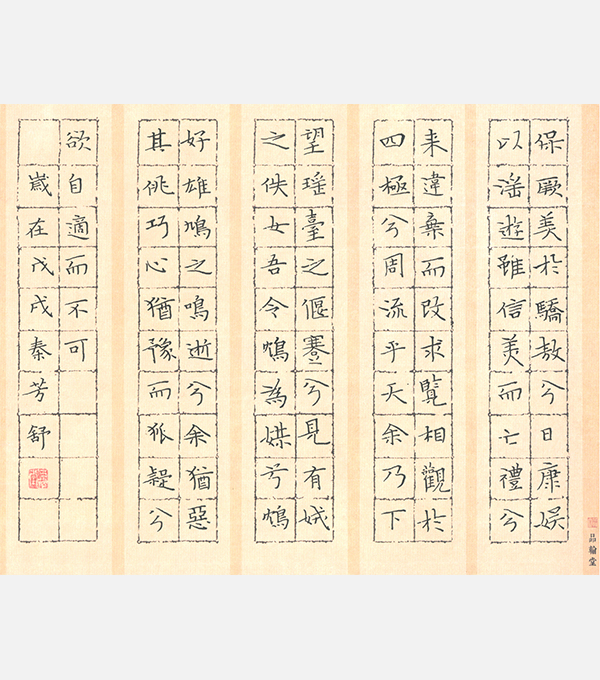 保厥美於驕敖兮日康娱
以滛遊雖信美而亡禮兮
来違棄而改求覽相觀於
四極兮周流乎天余乃下
望瑶臺之偃蹇兮見有娀
之佚女吾令鴆為媒兮鴆
好雄鳩之鳴逝兮余猶惡
其佻巧心猶豫而狐疑兮
欲自適而不可
嵗在戊戌秦芳舒
品翰堂